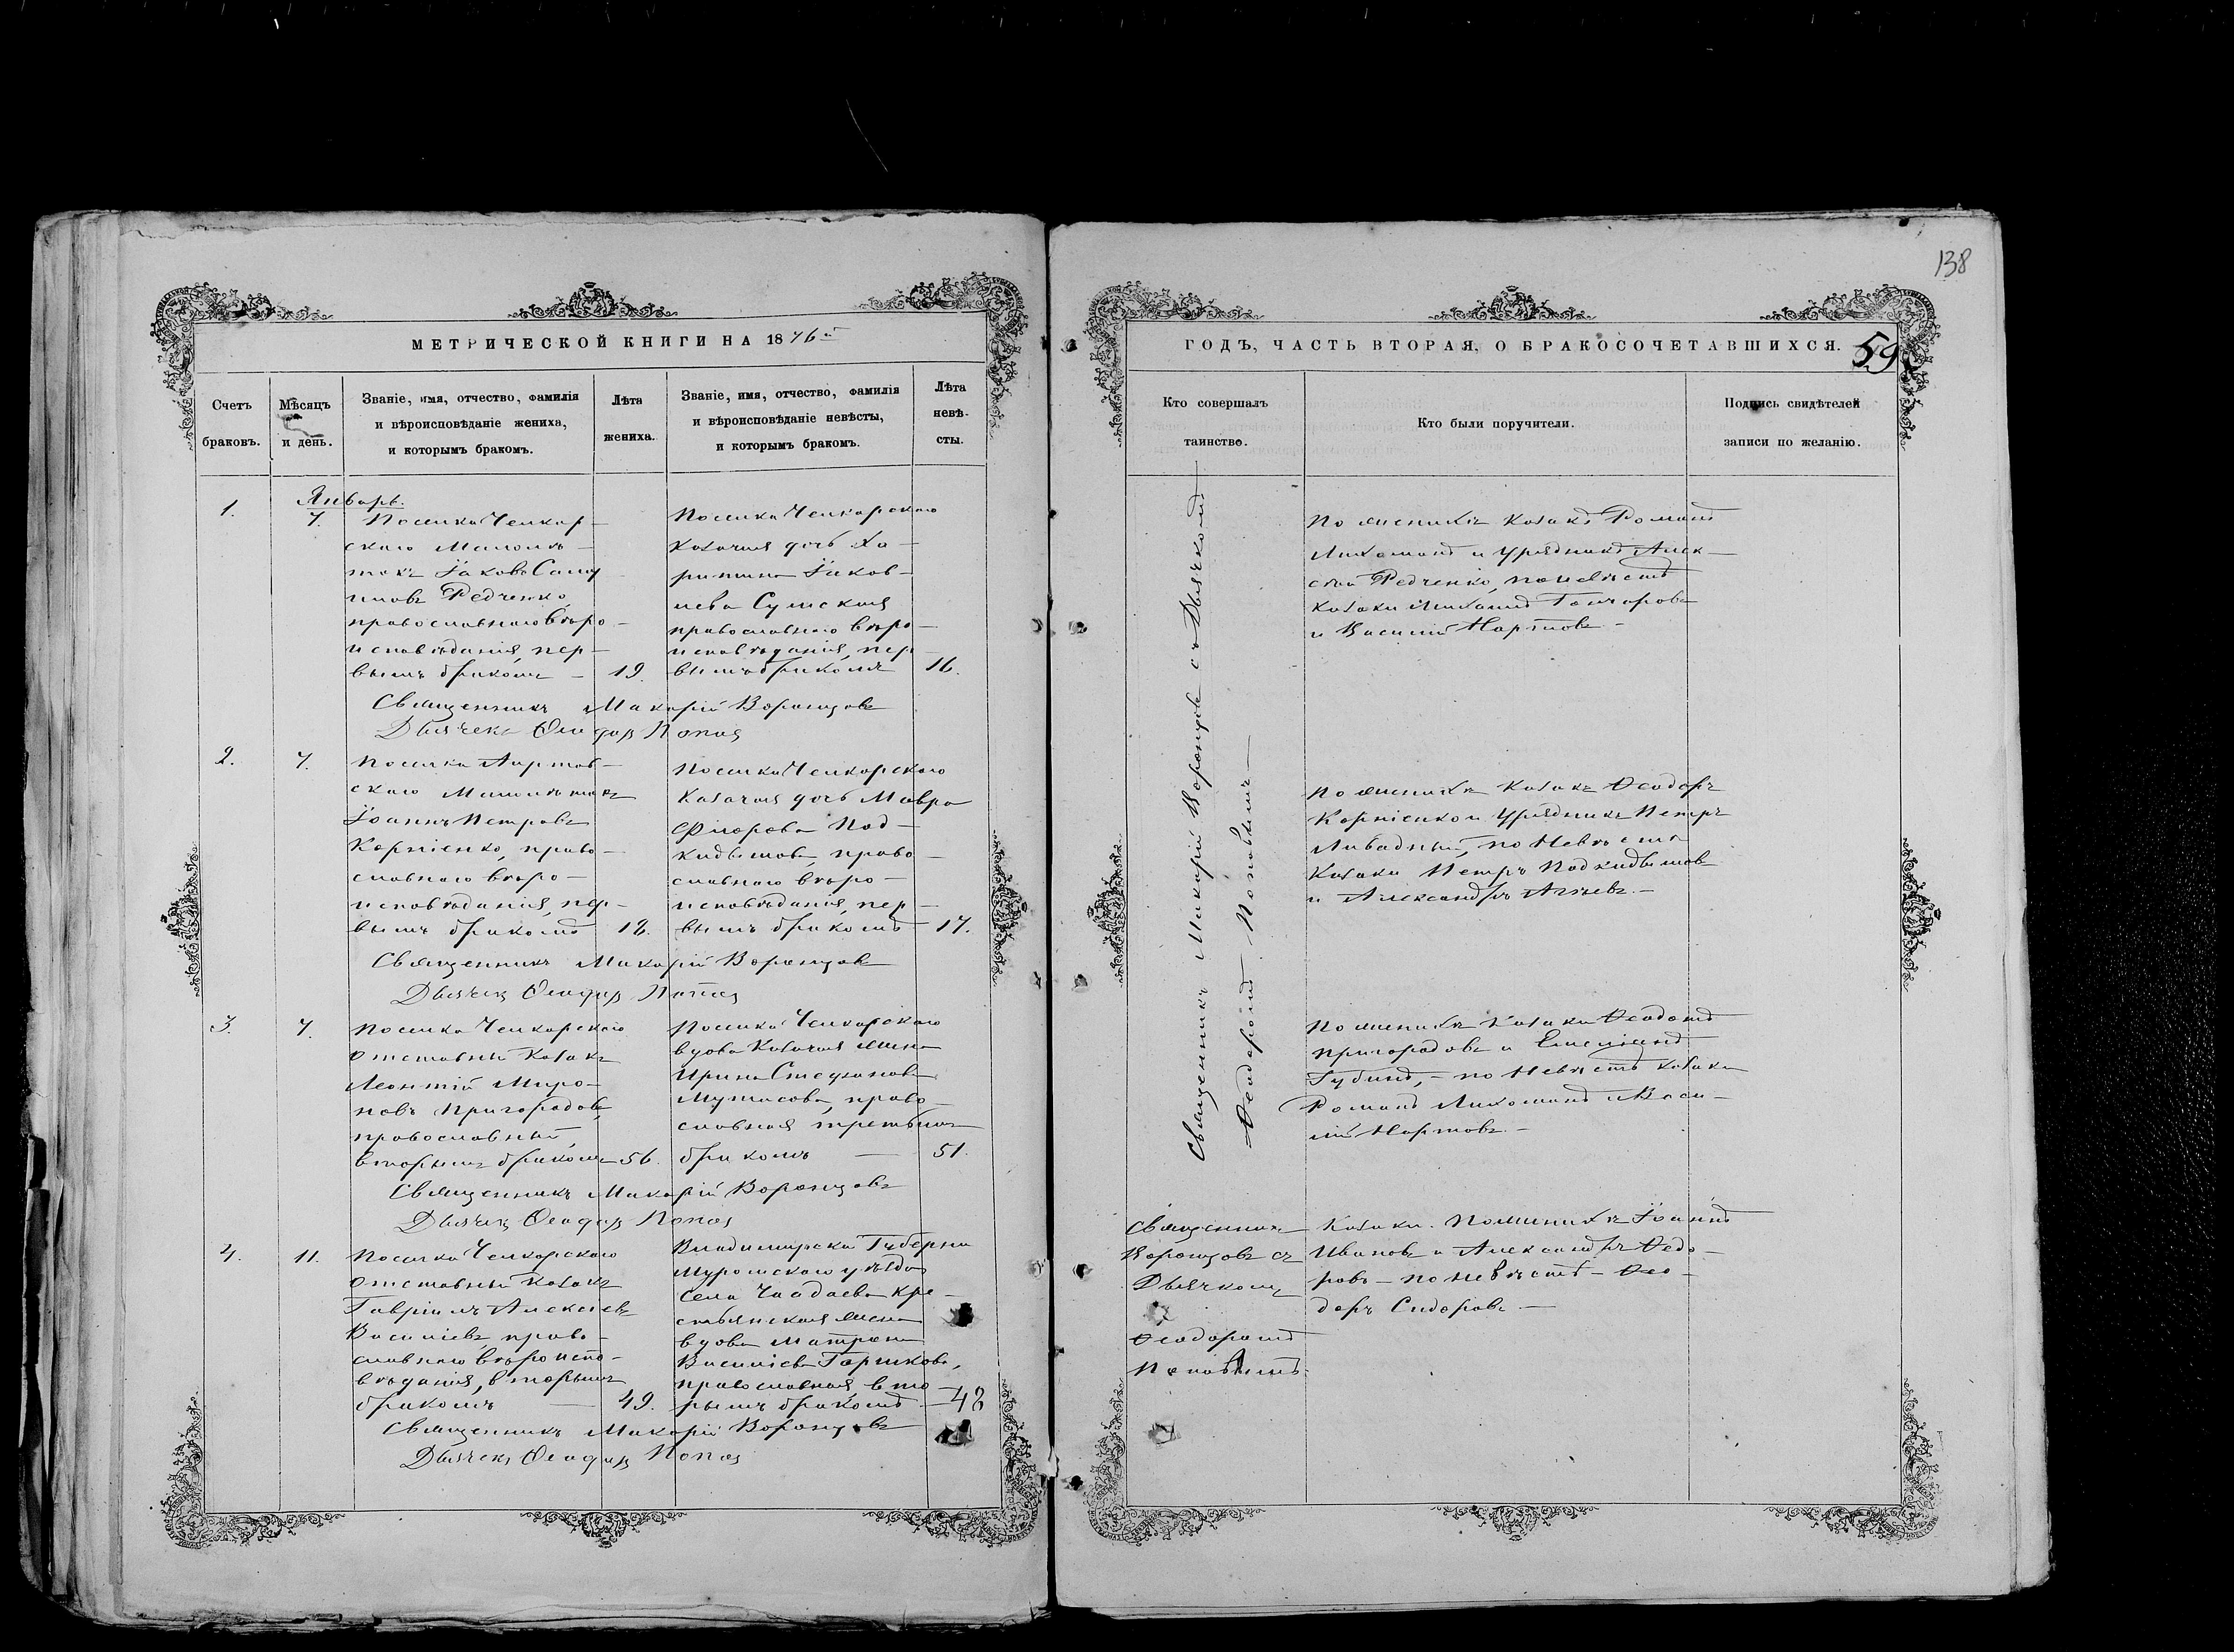 138
МЕТРИЧЕСКОЙ КНИГИ НА 1876й
Счетъ браковъ.
Мѣсяцъ и день.
Званіе, имя, отчество, фамилія
и вѣроисповѣданіе жениха,
и которымъ бракомъ.
Лѣта жениха.
Званіе, имя, отчество, фамилія
и вѣроисповѣданіе невѣсты,
и которымъ бракомъ.
Лѣта невѣ-
сты.
Январь.
1.
7.
Поселка Челкар-
скаго Малолѣ-
токъ Іаковъ Саму
иловъ Редченко,
православнаго вѣро-
исповѣданія, пер-
вымъ бракомъ - 19.
Поселка Челкарскаго
Казачья дочь Ха-
ритина Іаков-
лева Сумская
православнаго вѣро-
исповѣданія, пер-
вымъ бракомъ 16.
Священникъ Макарій Воронцовъ
Дьячекъ Ѳеодоръ Попов
2.
7.
скаго Малолѣтокъ
Іоаннъ Петровъ
Корніенко, право-
славнаго вѣро-
исповѣданія, пер-
вымъ бракомъ 18.
Поселка Челкарскаго
Казачья дочь Мавра
право-
славнаго вѣро-
исповѣданія, пер-
вымъ бракомъ 17.
Священникъ Макарій Воронцовъ
Дьячекъ Ѳеодоръ Попов
3.
7.
Поселка Челкарскаго
отставный Казакъ
Леонтій Миро-
новъ Пригородовъ,
православный,
вторымъ бракомъ 56.
Поселка Челкарскаго
вдова Казачья жена
Ирина Стефанова
право-
славная третьимъ
бракомъ — 51.
Священникъ Макарій Воронцовъ
Дьячекъ Ѳеодоръ Попов
4.
11.
Поселка Челкарскаго
отставный Казакъ
Гавріилъ Алексѣевъ
Василіевъ, право-
славнаго вѣроиспо-
вѣданія, вторымъ
бракомъ — 49.
Владимирской Губерніи
Муромскаго уѣзда
села Чаадаева кре-
стьянская жена
вдова Матрона
Василіева Горшкова,
православная, вто-
рымъ бракомъ — 48
Священникъ Макарій Воронцовъ
Дьячекъ Ѳеодоръ Попов
ГОДЪ, ЧАСТЬ ВТОРАЯ, О БРАКОСОЧЕТАВШИХСЯ.
59
Кто совершалъ
таинство.
Кто были поручители.
Подпись свидѣтелей
записи по желанію.
Священникъ Макарій Воронцовъ съ Дьячкомъ
Ѳеодоромъ Поповымъ —
По женихѣ Казакъ Романъ
Лихоманъ и урядникъ Алек-
сѣй Редченко, по невѣстѣ
Казаки Михаилъ Гончаровъ
и Василій Нартовъ. -
По женихѣ Казакъ Ѳеодоръ
Корніенко и урядникъ Петръ
по Невѣстѣ
Казаки Петръ
и Александръ
По женихѣ Казаки
Пригородовъ и Емеліанъ
Губинъ, - по Невѣстѣ казаки
Романъ Лихоманъ и Васи-
лій Нартовъ. -
Священникъ
Воронцовъ съ
Дьячкомъ
Ѳеодоромъ
Поповымъ.
Казаки. По женихѣ Іоаннъ
Ивановъ и Александръ Ѳедо-
ровъ - по невѣстѣ - Ѳео-
доръ Сидоровъ. —